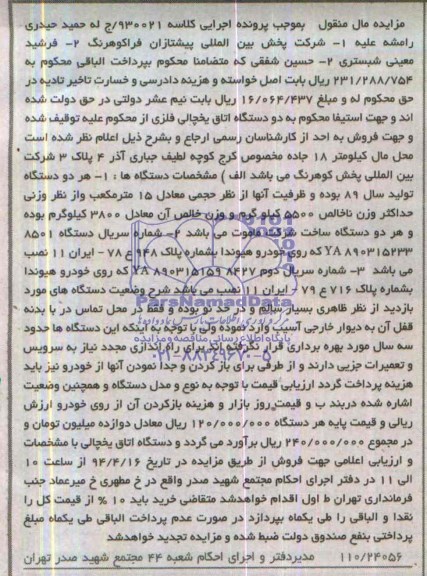 مزایده مال منقول   بموجب پرونده اجرایی کلاسه ۹۳۰۰۲۱/ج له حمید حیدری
رامشه علیه ۱- شرکت پخش بین المللی پیشتازان فراکوهرنگ ۲- فرشید
معینی شبستری ۲- حسین شفقی که متضامنا محکوم بپرداخت الباقی محکوم به
۲۳۱/۲۸۸/۷۵۴ ریال بابت اصل خواسته و هزینه دادرسی و خسارت تاخیر تادیه در
حق محکوم له و مبلغ ۱۶/۰۶۴/۴۳۷ ریال بابت نیم عشر دولتی در حق دولت شده
اند و جهت استیفا محکوم به دو دستگاه اتاق یخچالی فلزی از محکوم علیه توقیف شده
و جهت فروش به احد از کارشناسان رسمی ارجاع و بشرح ذیل اعلام نظر شده است
محل مال کیلومتر ۱۸ جاده مخصوص کرج کوچه لطیف جباری آذر ۴ پلاک ۳ شرکت
بین المللی پخش کوهرنگ می باشد الف ) مشخصات دستگاه ها : ۱- هر دو دستگاه
تولید سال ۸۹ بوده و ظرفیت آنها از نظر حجمی معادل ۱۵ مترمکعب واز نظر وزنی
حداکثر وزن ناخالص ۵۵۰۰ کیلو گرم و وزن خالص آن معادل ۳۸۰۰ کیلوگرم بوده
و هر دو دستگاه ساخت شرکت ماموت می باشد ۲- شماره سریال دستگاه ۸۵۰۱
YA ۸۹۰۳۱۵۲۳۳ که روی خودرو هیوندا بشماره پلاک ۹۴۸ ع ۷۸ - ایران ۱۱ نصب
می باشد  ۳- شماره سریال دوم ۸۴۲۷ YA ۸۹۰۳۱۵۱۵۹ که روی خودرو هیوندا
بشماره پلاک ۷۱۶ ع ۷۹ - ایران ۱۱ نصب می باشد شرح وضعیت دستگاه های مورد
بازدید از نظر ظاهری بسیار سالم و در حد نو بوده و فقط در محل تماس در با بدنه
قفل آن به دیوار خارجی آسیب وارد نموده ولی با توجه به اینکه این دستگاه ها حدود
سه سال مورد بهره برداری قرار نگرفته اند برای راه اندازی مجدد نیاز به سرویس
و تعمیرات جزیی دارند و از طرفی برای باز کردن و جدا نمودن آنها از خودرو نیز باید
هزینه پرداخت گردد ارزیابی قیمت با توجه به نوع و مدل دستگاه و همچنین وضعیت
اشاره شده دربند ب و قیمت روز بازار و هزینه بازکردن آن از روی خودرو ارزش
ریالی و قیمت پایه هر دستگاه ۱۲۰/۰۰۰/۰۰۰ ریال معادل دوازده میلیون تومان و
در مجموع ۲۴۰/۰۰۰/۰۰۰ ریال برآورد می گردد و دستگاه اتاق یخچالی با مشخصات
و ارزیابی اعلامی جهت فروش از طریق مزایده در تاریخ ۹۴/۴/۱۶ از ساعت ۱۰
الی ۱۱ در دفتر اجرای احکام مجتمع شهید صدر واقع در خ مطهری خ میرعماد جنب
فرمانداری تهران ط اول اقدام خواهدشد متقاضی خرید باید ۱۰ % از قیمت کل را
نقدا و الباقی را طی یکماه بپردازد در صورت عدم پرداخت الباقی طی یکماه مبلغ
پرداختی بنفع صندوق دولت ضبط شده و مزایده تجدید خواهدشد
۱۱۰/۲۴۰۵۶   مدیردفتر و اجرای احکام شعبه ۴۴ مجتمع شهید صدر تهران
ParsNamadData
پایگاه اطلاع رسانی مناقصه و مزایده
۰۲۱-۸۸۳۴۹۶۷۰-۵